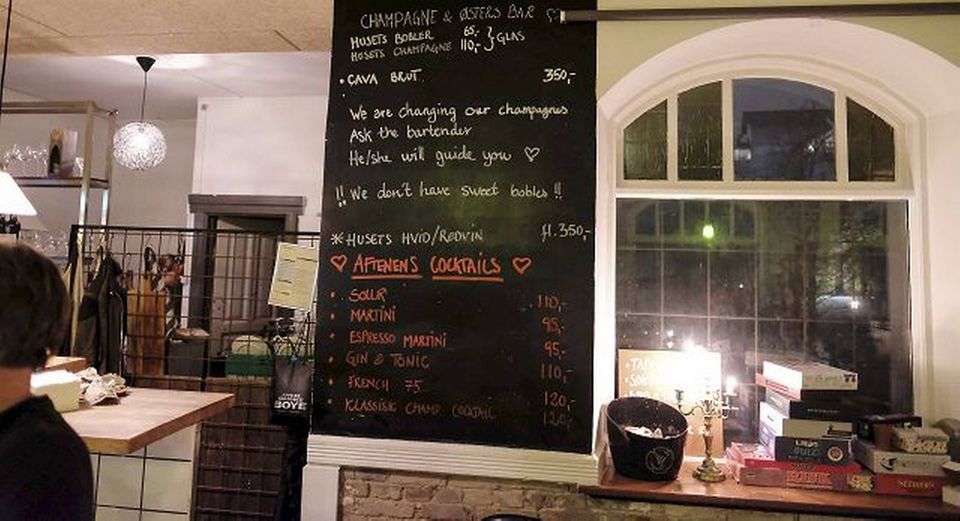 CHAMPAGNE & ØSTERS BAR
HUSETS BOBLER 65,-
HUSETS CHAMPAGNE 110,- } GLAS
• CAVA BRUT. 350,-
We are changing our champagnes
Ask the bartender
He/she will guide you ♡
!! We don't have sweet bobles !!
* HUSETS HVID/RØDVIN fl. 350,-
♡ AFTENENS COCKTAILS ♡
• SOUR 110,-
• MARTINI 95,-
• ESPRESSO MARTINI 95,-
• GIN & TONIC 110,-
• FRENCH 75 120,-
• KLASSISK CHAMP COCKTAIL 120,-
BOYE
QUIZ
RISK